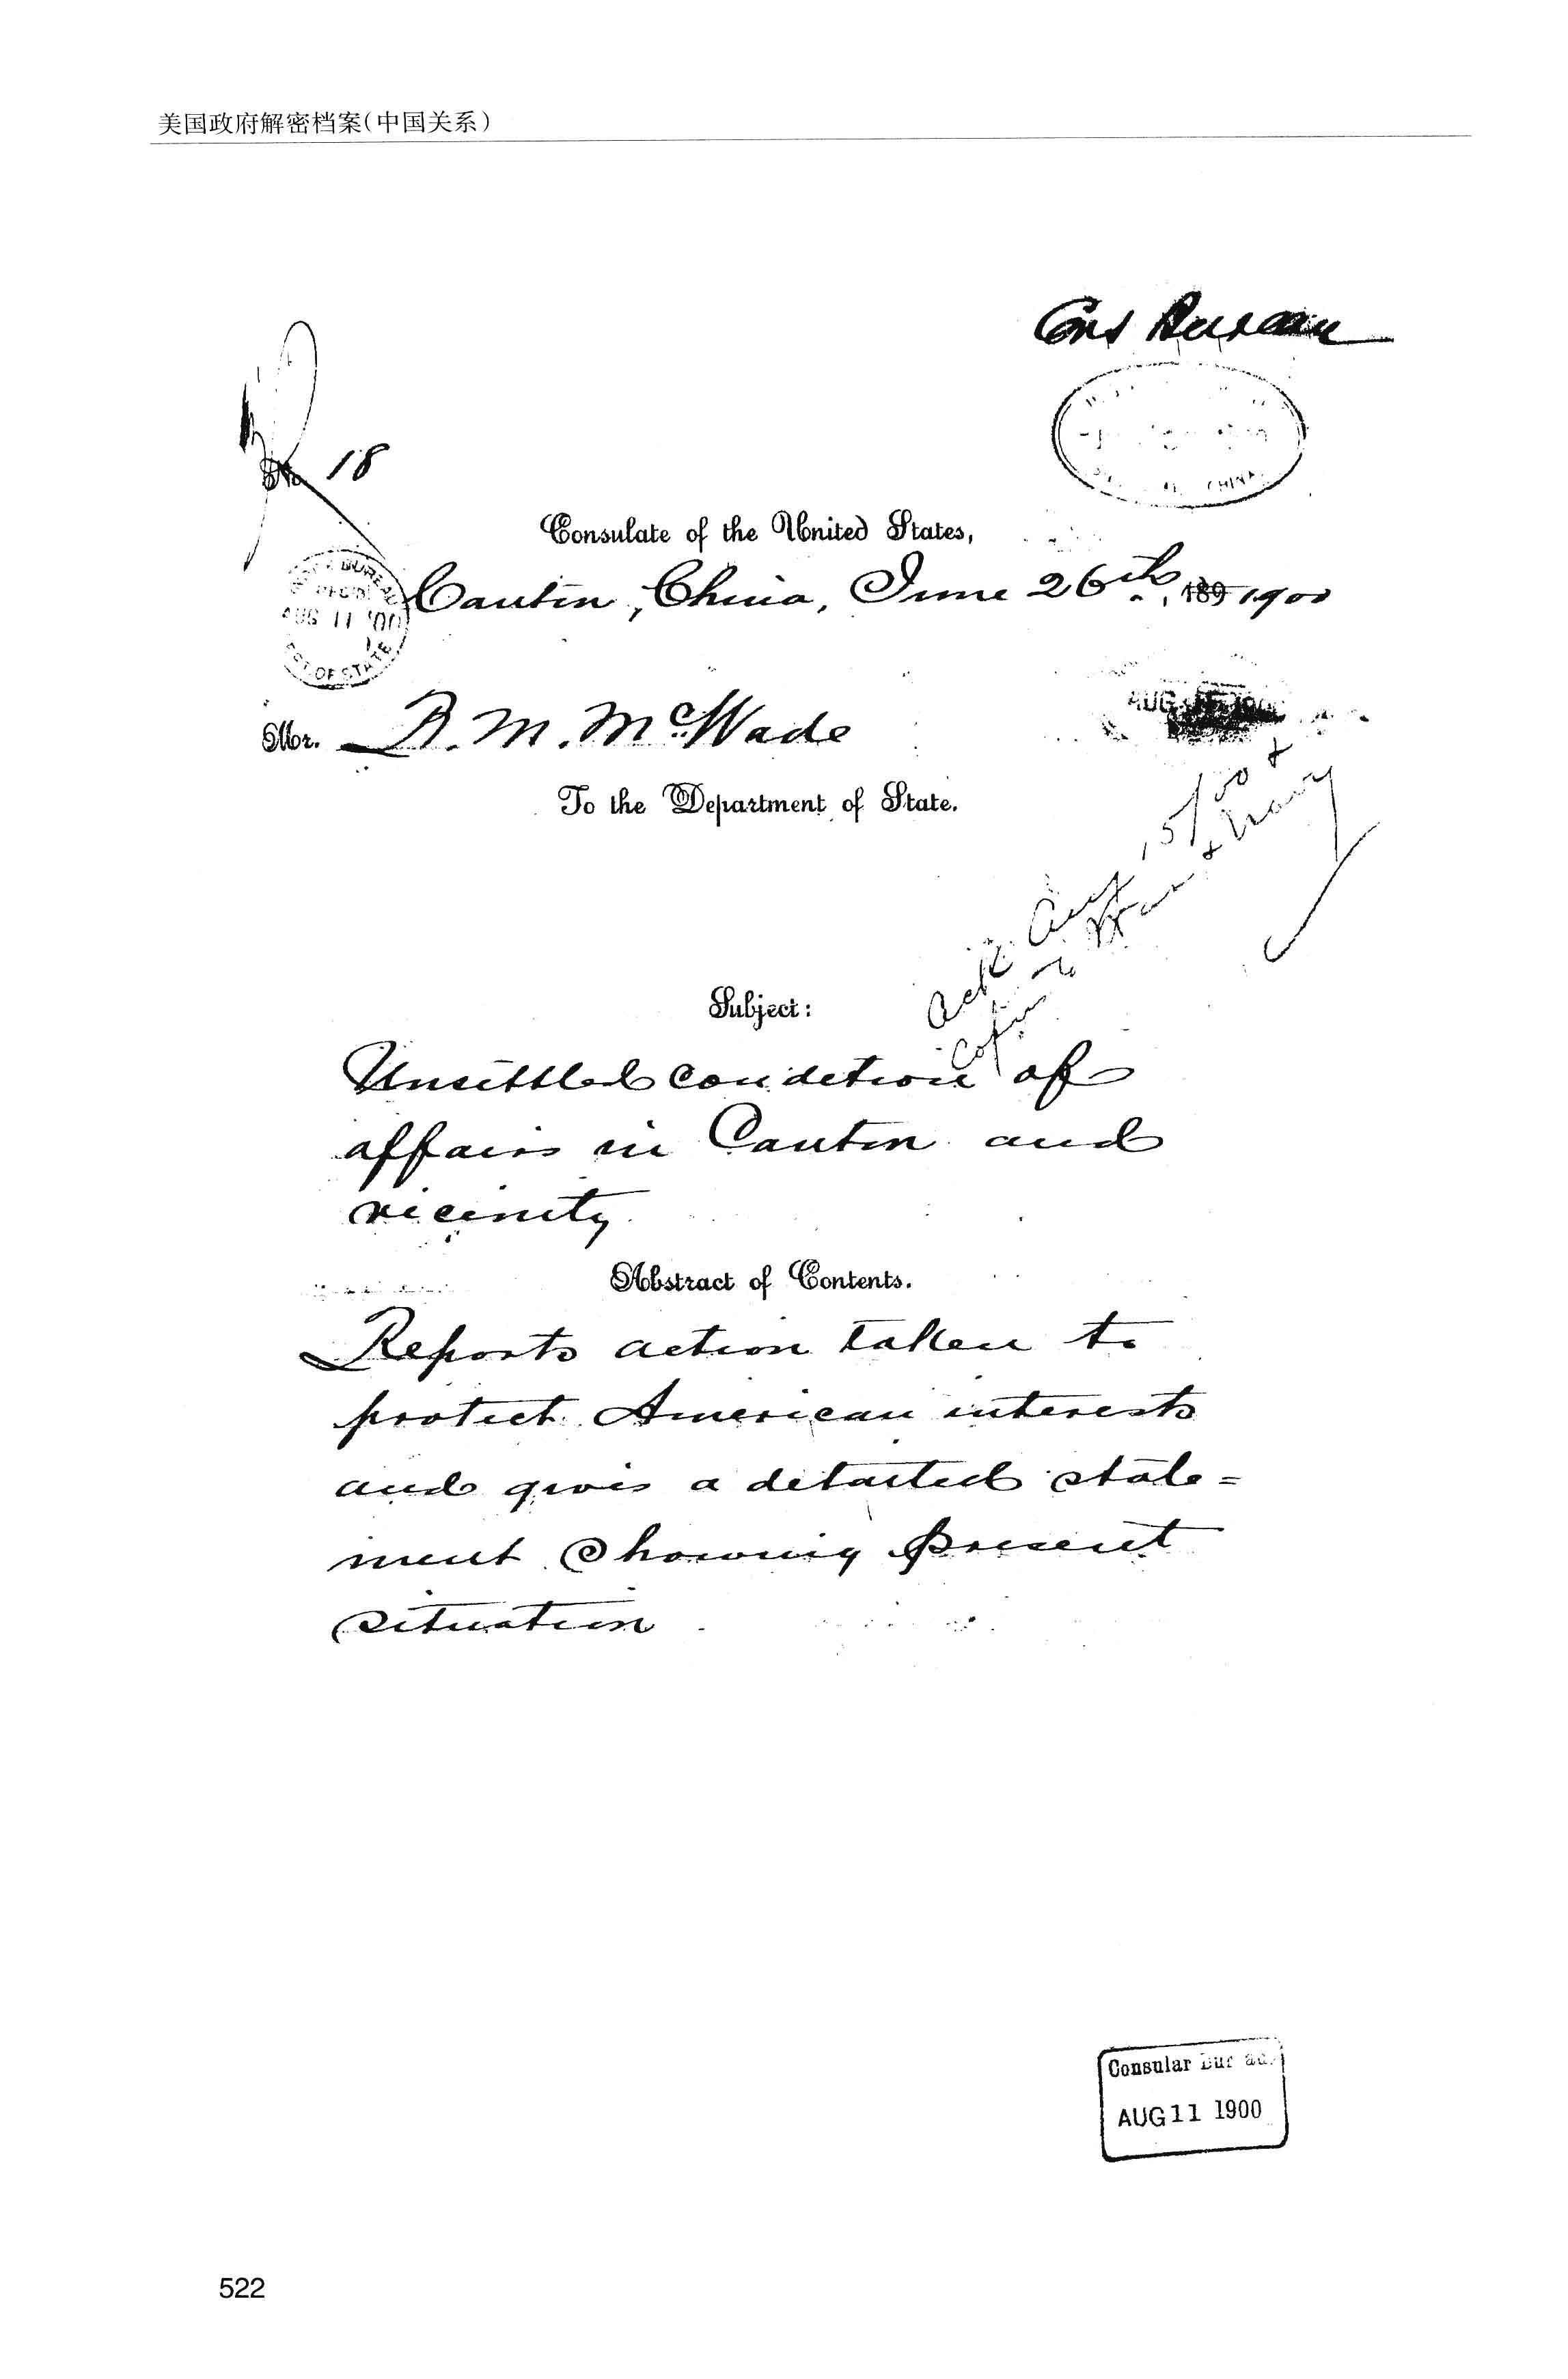 美国政府解密档案(中国关系)
Cons Bureau
No. 18
CHINA
Consulate of the United States,
Canton, China, June 26th, 189 1900
BUREAU
AUG 11 '00
DEPT OF STATE
Mr. R. M. McWade
AUG 1900
To the Department of State.
Ack. Aug 15/00 &
Copies to War & Navy
Subject:
Unsettled condition of
affairs in Canton and
vicinity.
Abstract of Contents.
Reports action taken to
protect American interests
and gives a detailed state=
ment showing present
situation.
Consular Bureau
AUG 11 1900
522